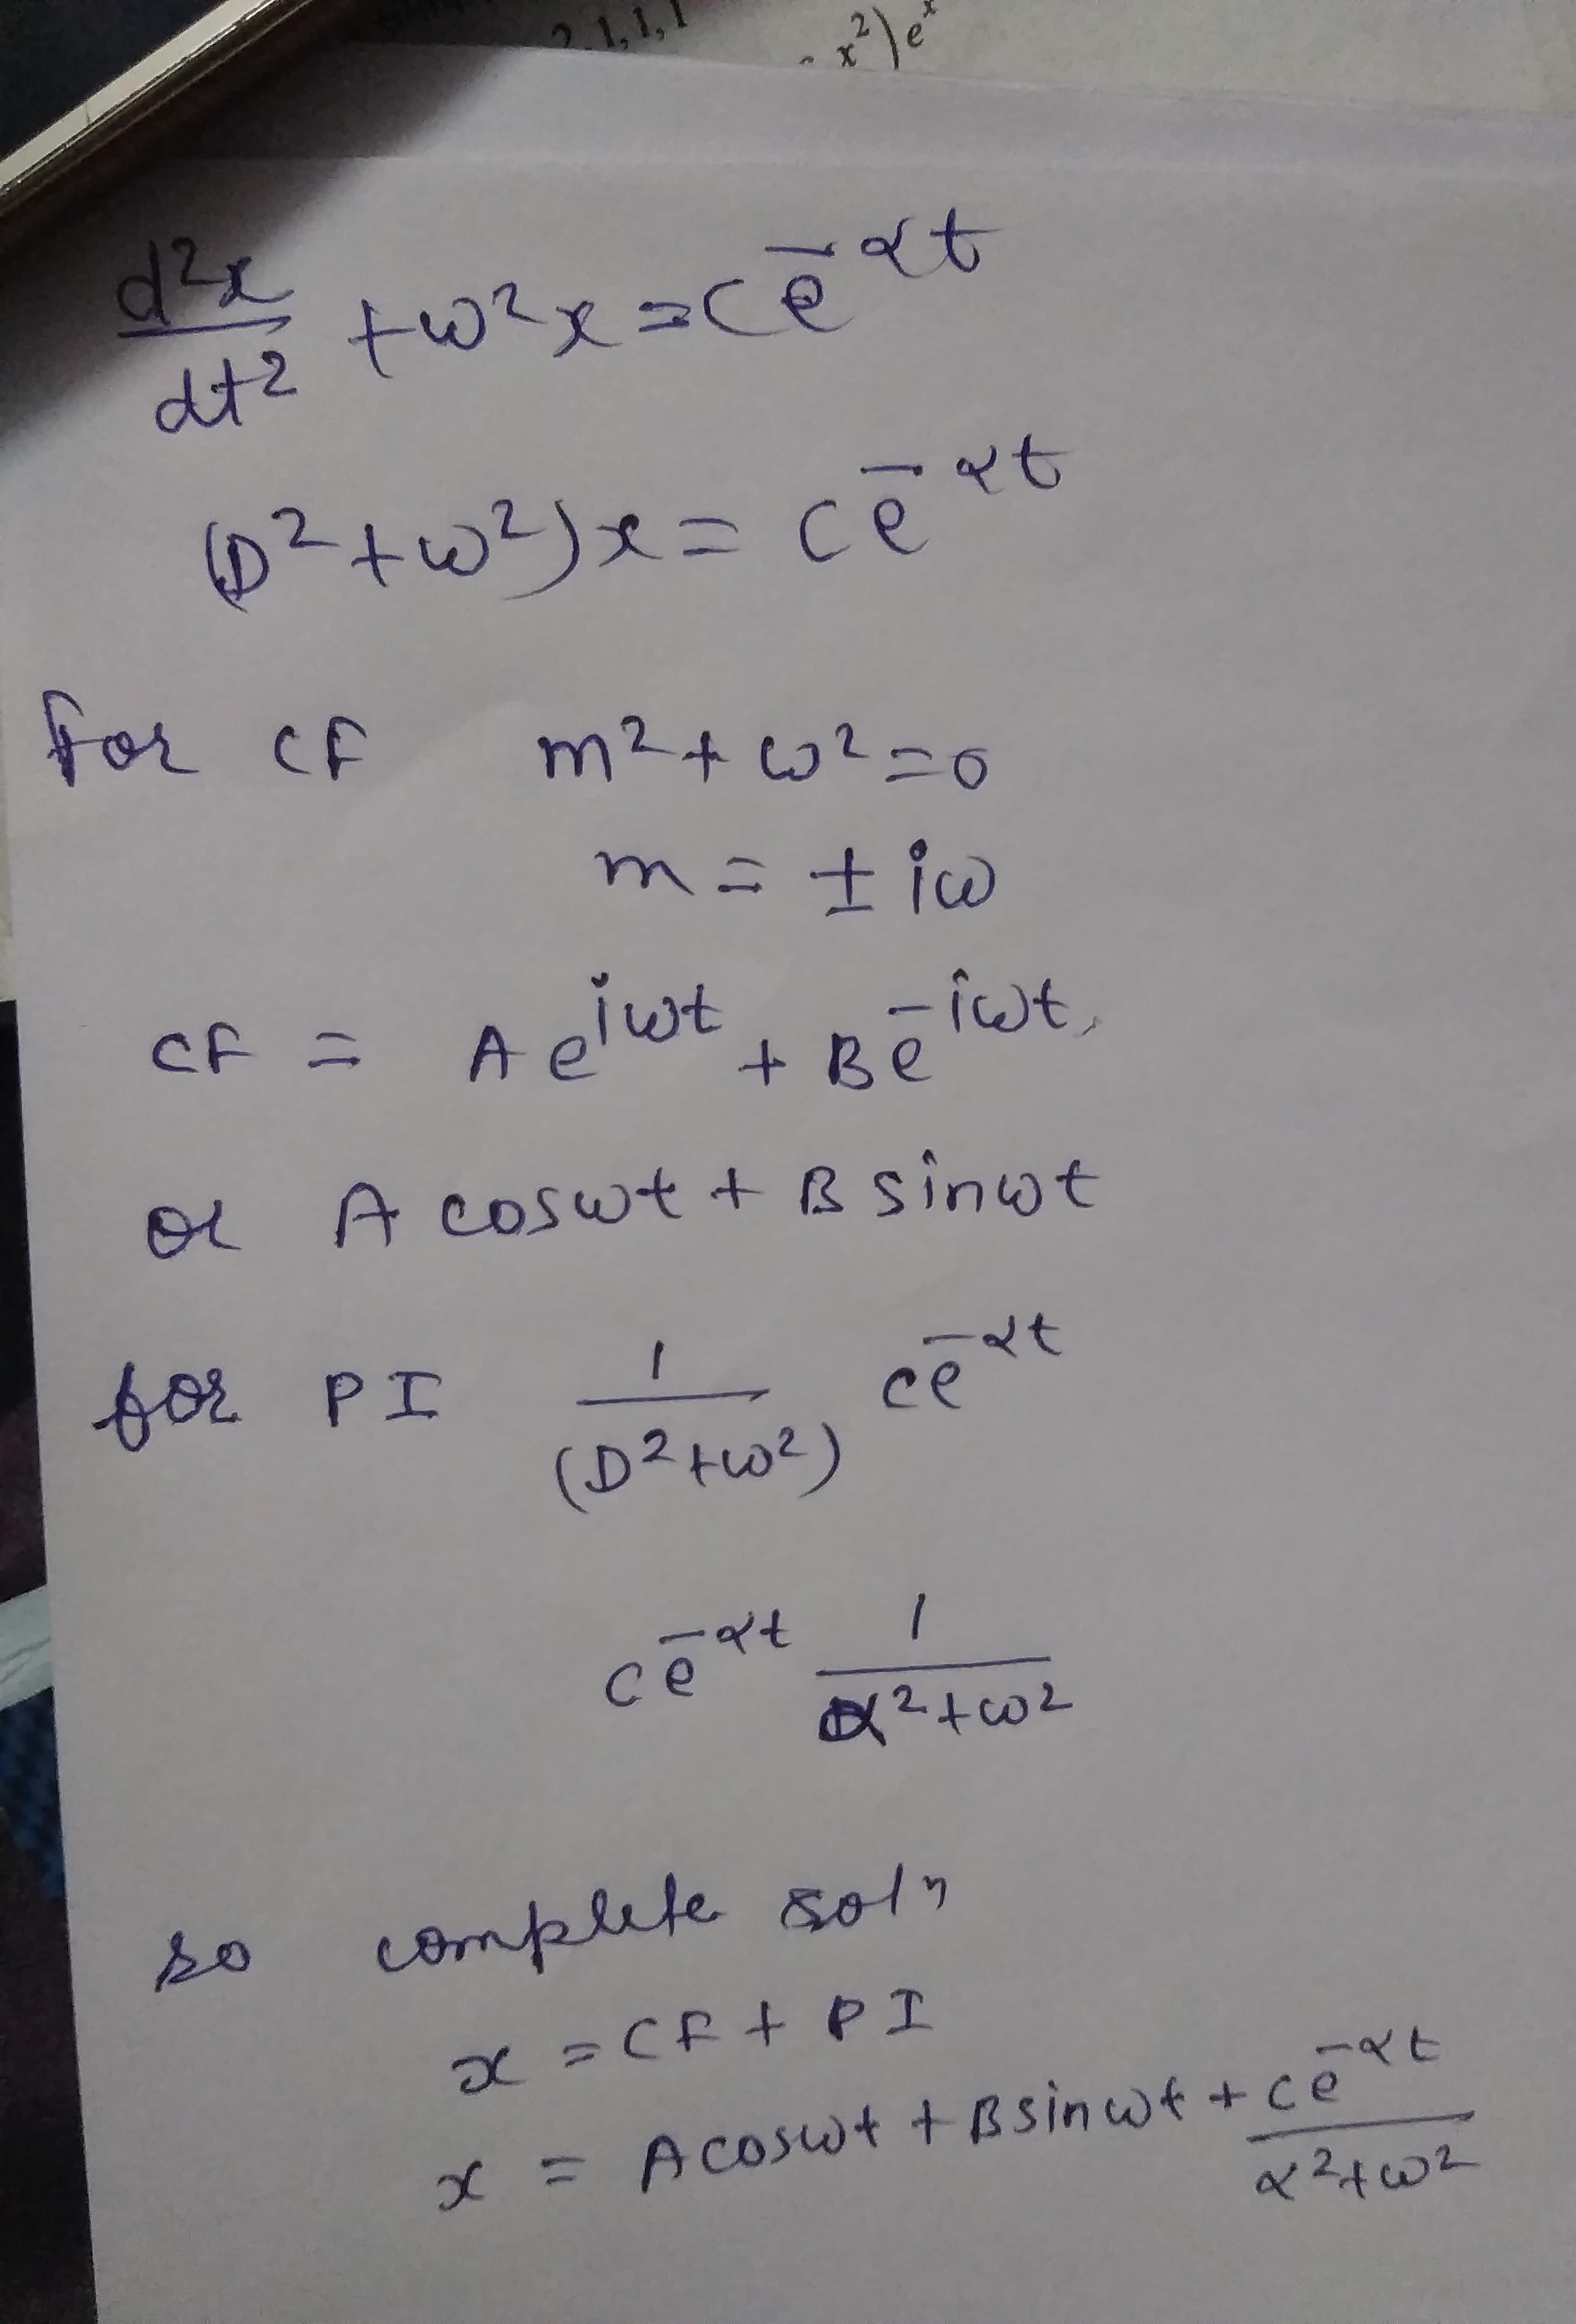 2,1,1,1
- x²)eˣ
d²x/dt² + ω²x = Ce^-αt
(D² + ω²)x = Ce^-αt
For CF m² + ω² = 0
m = ± iω
CF = Ae^iωt + Be^-iωt
or A cosωt + B sinωt
for PI 1/(D²+ω²) Ce^-αt
Ce^-αt 1/α²+ω²
so complete solⁿ
x = CF + PI
x = Acosωt + Bsinωt + Ce^-αt/α²+ω²